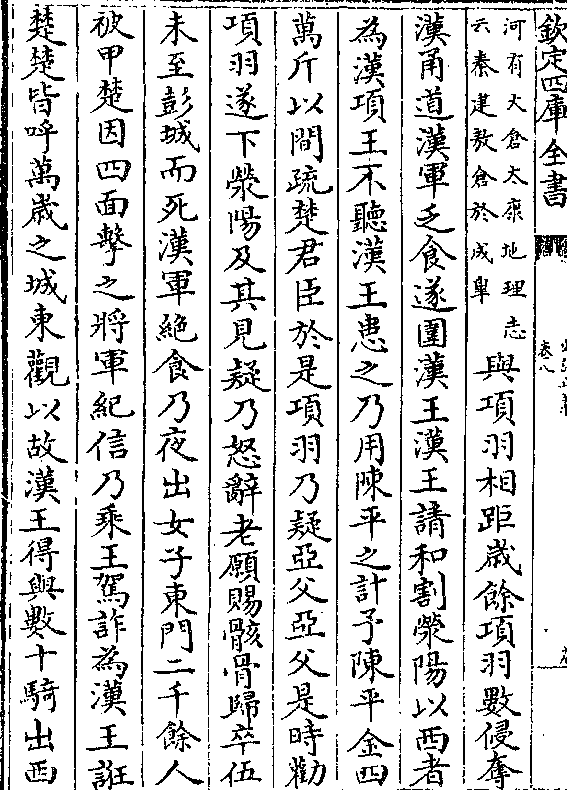 欽定四庫全書
卷八
河有大倉太康地理志
云秦建敖倉於成皐
與項羽相距歲餘項羽數侵奪
漢甬道漢軍乏食遂圍漢王漢王請和割滎陽以西者
為漢項王不聽漢王患之乃用陳平之計予陳平金四
萬斤以間疏楚君臣於是項羽乃疑亞父亞父是時勸
項羽遂下滎陽及其見疑乃怒辭老願賜骸骨歸卒伍
未至彭城而死漢軍絶食乃夜出女子東門二千餘人
被甲楚因四面擊之將軍紀信乃乘王駕詐為漢王誑
楚楚皆呼萬歲之城東觀以故漢王得與數十騎出西